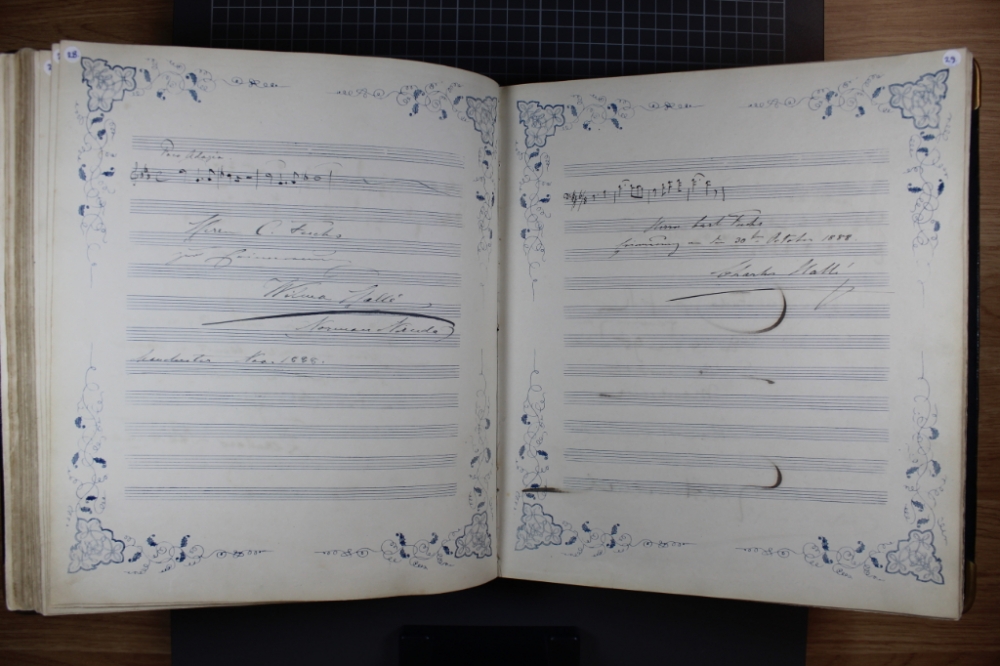 28
Poco Adagio
Herrn C. Fuchs
zur Erinnerung
Wilma Hallé
Norman Neruda
Manchester Nov. 1888.
29
Herrn Carl Fuchs
Erinnerung an den 30ten October 1888
Charles Hallé